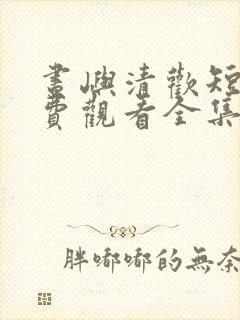 畫嶼清歡短
費觀看全集
胖嘟嘟的無奈